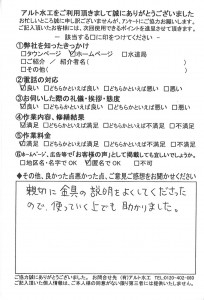 アルト水工をご利用頂きまして誠にありがとうございました
お忙しいところ誠に申し訳ございませんが、アンケートにご協力お願いします。
ご記入頂いたお客様には、次回使用できるポイントを進呈させて頂きます。
― 該当する□に印をつけてください ―
①弊社を知ったきっかけ
□タウンページ ☑ホームページ □水道局
□ご紹介 / 紹介者名( )
□その他( )
②電話の対応
☑良い □どちらかといえば良い □どちらかといえば悪い □悪い
③お伺いした際の礼儀・挨拶・態度
☑良い □どちらかといえば良い □どちらかといえば悪い □悪い
④作業内容、修繕結果
☑満足 □どちらかといえば満足 □どちらかといえば不満足 □不満足
⑤作業料金
☑満足 □どちらかといえば満足 □どちらかといえば不満足 □不満足
⑥ホームページ、広告等で「お客様の声」として掲載しても宜しいでしょうか。
□地区名・名字でOK ☑匿名でOK □不可
◆その他、良かった点悪かった点、ご意見ご感想をお聞かせください◆
親切に金具の説明をよくしてくださった
ので、使っていく上でも助かりました。
ご協力誠にありがとうございました。 お問合せ先 (有)アルト水工 ☎0120-402-663
ご記入頂いた個人情報は、ご本人様の同意がない限り第三者には提供いたしません。